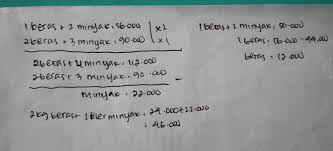 1 beras + 2 minyak = 56.000 | x2
2 beras + 3 minyak = 90.000 | x1
2 beras + 4 minyak = 112.000
2 beras + 3 minyak = 90.000 -
minyak = 22.000
2 kg beras + 1 liter minyak = 24.000 + 22.000
= 46.000
1 beras + 2 minyak = 56.000
1 beras = 56.000 - 44.000
beras = 12.000